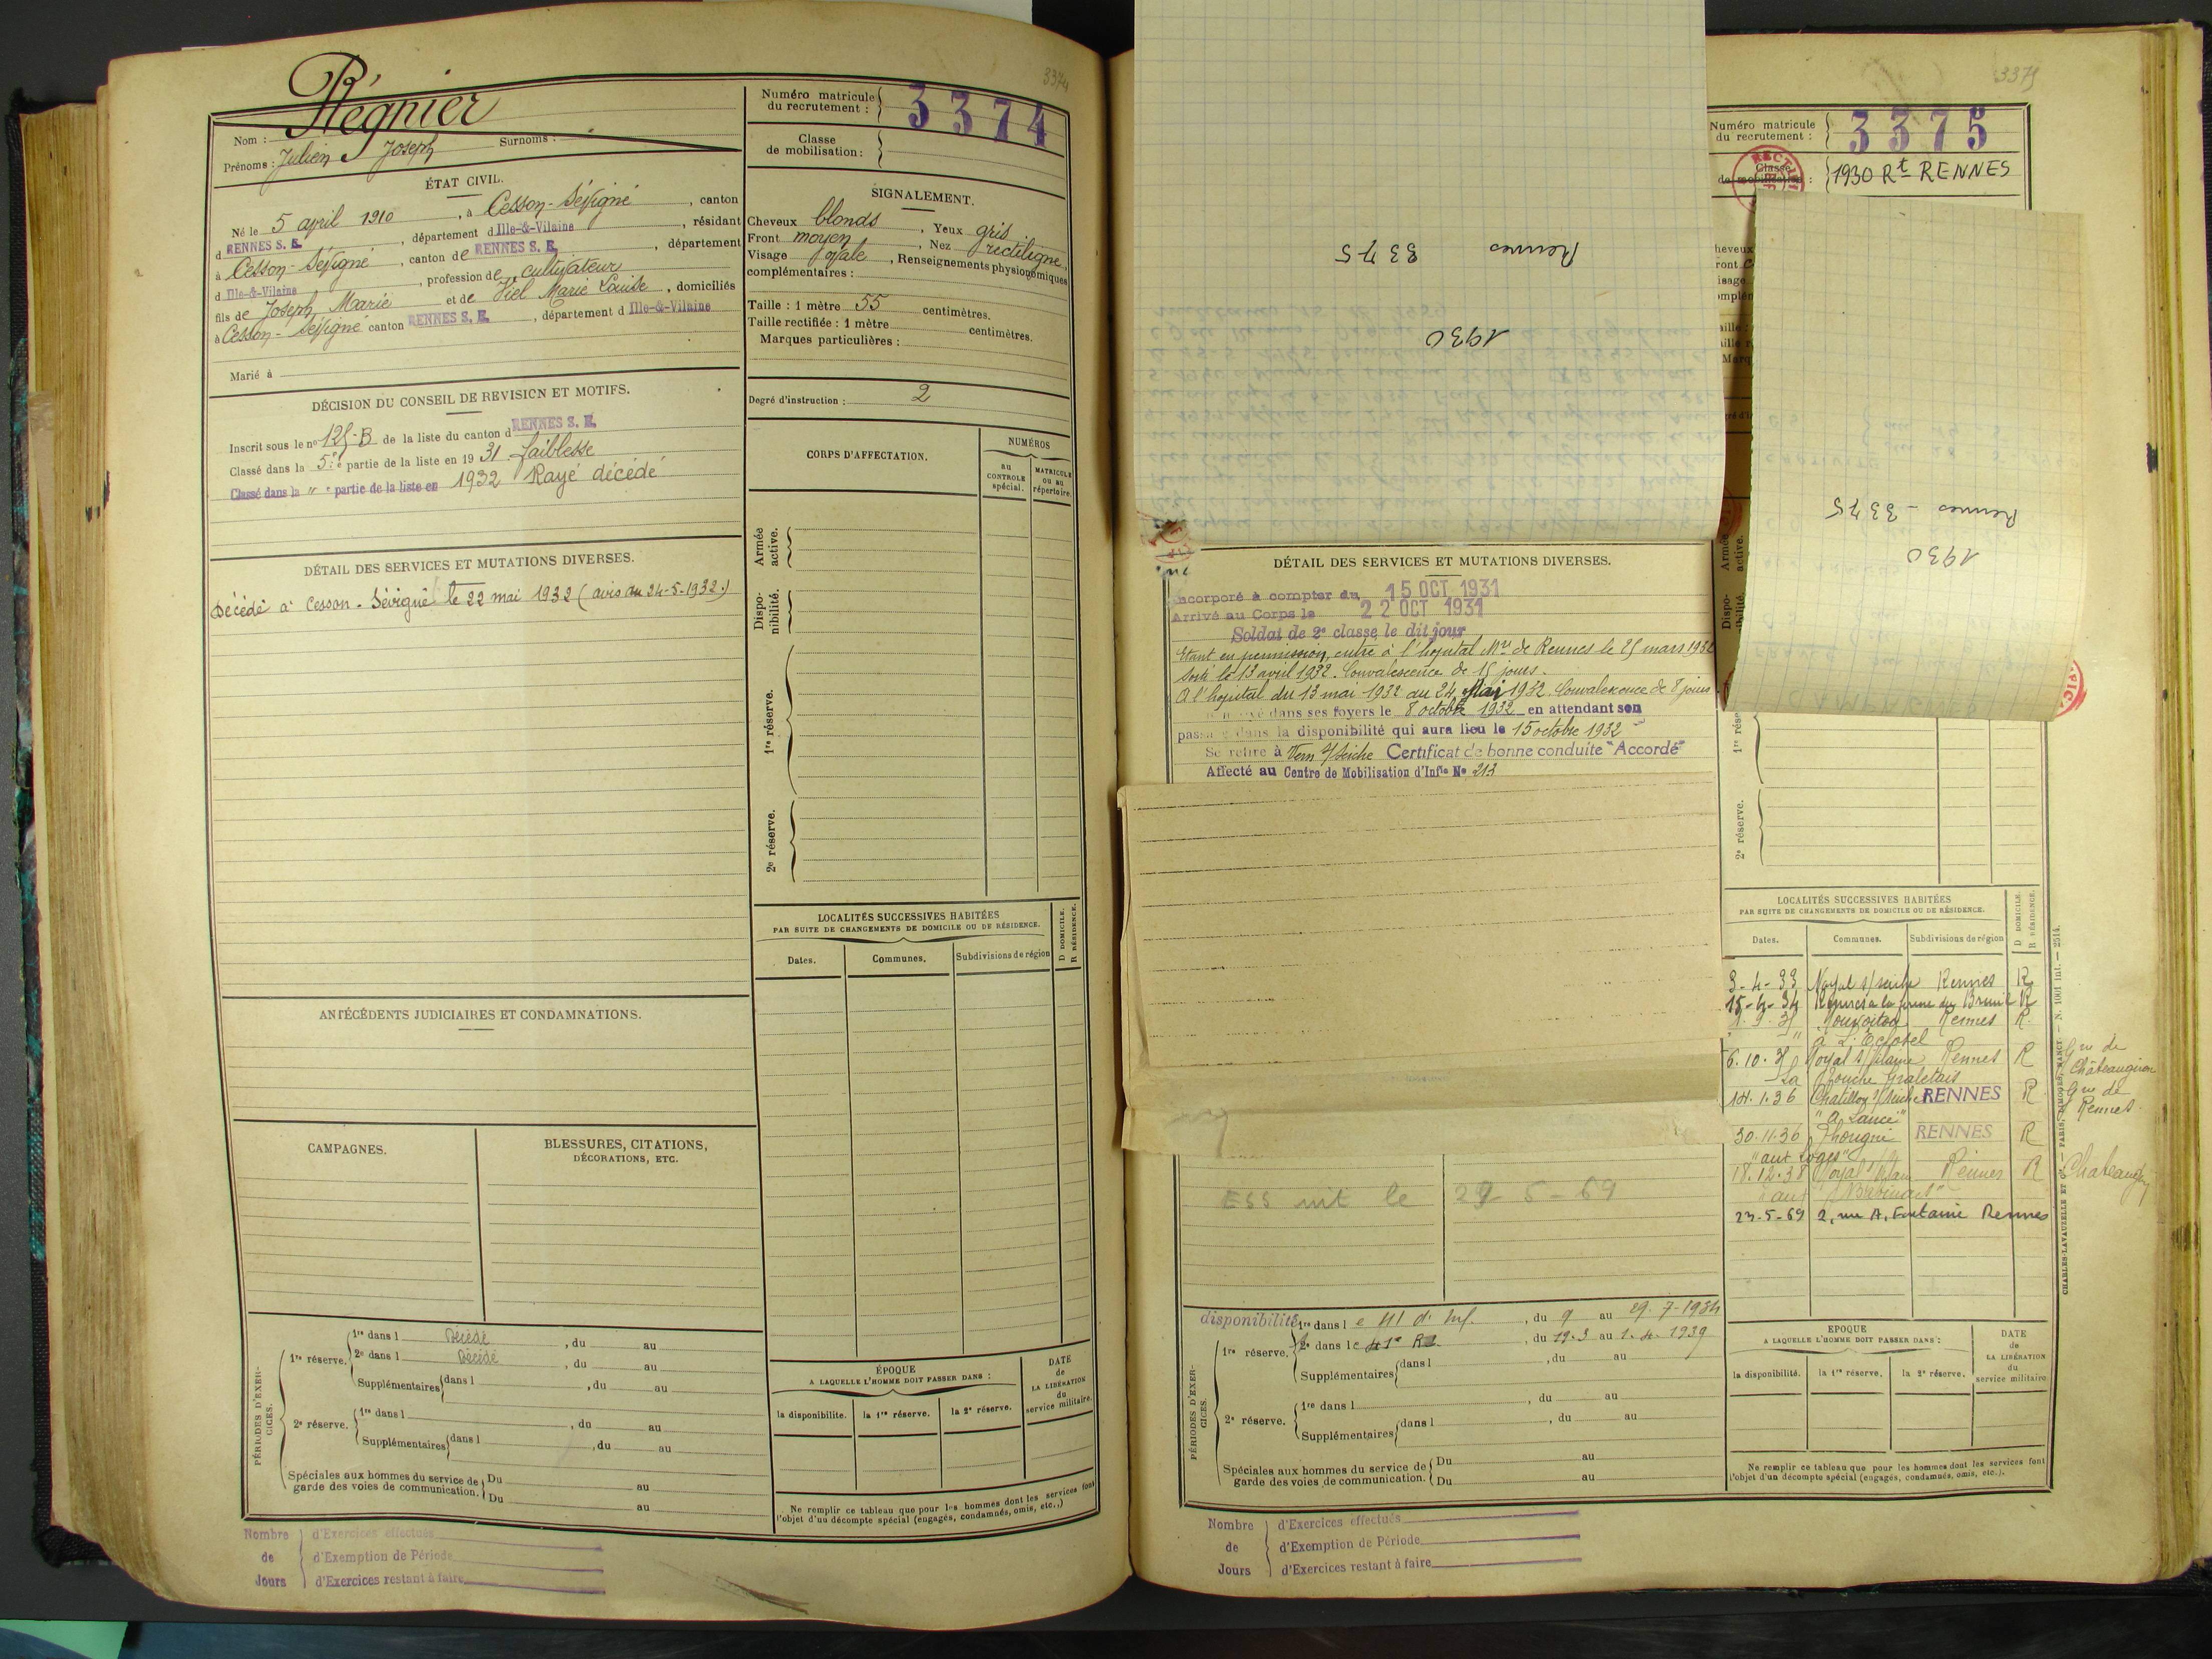 3374
Régnier
Nom :
Prénoms : Julien Joseph Surnoms :
Numéro matricule du recrutement : 3374
Classe de mobilisation :
ÉTAT CIVIL.
Né le 5 avril 1910, à Cesson-Sévigné, canton
d RENNES S. E., département d Ille-&-Vilaine, résidant
à Cesson-Sévigné, canton de RENNES S. E., département
d Ille-&-Vilaine, profession de cultivateur
fils de Joseph Marie et de Viel Marie Louise, domiciliés
à Cesson-Sévigné canton RENNES S. E., département d Ille-&-Vilaine
Marié à
SIGNALEMENT.
Cheveux blonds, Yeux gris
Front moyen, Nez rectiligne
Visage ovale, Renseignements physionomiques
complémentaires :
Taille : 1 mètre 55 centimètres.
Taille rectifiée : 1 mètre centimètres.
Marques particulières :
Degré d'instruction : 2
DÉCISION DU CONSEIL DE REVISION ET MOTIFS.
Inscrit sous le nº 125-B de la liste du canton d RENNES S. E.
Classé dans la 5e partie de la liste en 1931 faiblesse
Classé dans la " e partie de la liste en 1932 Rayé décédé
DÉTAIL DES SERVICES ET MUTATIONS DIVERSES.
Décédé à Cesson-Sévigné le 22 mai 1932 (avis du 24-5-1932.)
CORPS D'AFFECTATION.
NUMÉROS
au CONTROLE spécial.
MATRICULE ou au répertoire.
Armée active.
Disponibilité.
1re réserve.
2e réserve.
LOCALITÉS SUCCESSIVES HABITÉES
PAR SUITE DE CHANGEMENTS DE DOMICILE OU DE RÉSIDENCE.
D DOMICILE.
R RÉSIDENCE.
Dates. Communes. Subdivisions de région
ANTÉCÉDENTS JUDICIAIRES ET CONDAMNATIONS.
CAMPAGNES.
BLESSURES, CITATIONS,
DÉCORATIONS, ETC.
PÉRIODES D'EXERCICES.
1re réserve.
1re dans l Décédé, du au
2e dans l Décédé, du au
Supplémentaires dans l, du au
2e réserve.
1re dans l, du au
Supplémentaires dans l, du au
Spéciales aux hommes du service de garde des voies de communication.
Du au
Du au
ÉPOQUE
A LAQUELLE L'HOMME DOIT PASSER DANS :
la disponibilité. la 1re réserve. la 2e réserve.
DATE de LA LIBÉRATION du service militaire.
Ne remplir ce tableau que pour les hommes dont les services font
l'objet d'un décompte spécial (engagés, condamnés, omis, etc.,)
Nombre de Jours
d'Exercices effectués
d'Exemption de Période
d'Exercices restant à faire
3375
Numéro matricule du recrutement : 3375
Classe de mobilisation : 1930 Rt RENNES
Rennes 3375
1930
Rennes - 3375
1930
DÉTAIL DES SERVICES ET MUTATIONS DIVERSES.
Incorporé à compter du 15 OCT 1931
Arrivé au Corps le 22 OCT 1931
Soldat de 2e classe le dit jour
Etant en permission, entré à l'hopital Mre de Rennes le 25 mars 1932
Sorti le 13 avril 1932. Convalescence de 15 jours.
A l'hopital du 13 mai 1932 au 24 Mai 1932. Convalescence de 8 jours
dans ses foyers le 8 octobre 1932 en attendant son
passage dans la disponibilité qui aura lieu le 15 octobre 1932
Se retire à Vern s/Seiche Certificat de bonne conduite "Accordé"
Affecté au Centre de Mobilisation d'Infie Nº 213
ESS le 29-5-69
Armée active.
Disponibilité.
1re rése
2e réserve.
LOCALITÉS SUCCESSIVES HABITÉES
PAR SUITE DE CHANGEMENTS DE DOMICILE OU DE RÉSIDENCE.
D DOMICILE.
R RÉSIDENCE.
Dates. Communes. Subdivisions de région
3-4-33 Noyal s/seiche Rennes R
15-4-34 Rennes à la ferme du Breuil R
Nouvoitou Rennes R.
Noyal s/Vilaine Rennes R
Gie de Châteaugiron
14.1.36 Chatillon s/Seiche RENNES R
Gie de Rennes
30-11-36 Thorigné RENNES R
"aux Loges"
18.12.38 Noyal s/Vilaine Rennes R
23-5-69 2, rue A. Fontaine Rennes
CHARLES-LAVAUZELLE ET Cie. — PARIS, LIMOGES, NANCY. — N. 1001 int. — 2514.
PÉRIODES D'EXERCICES.
disponibilité 1re dans l e 41 d'Inf., du 9 au 29-7-1934
1re réserve. 2e dans le 41e RI, du 12.3 au 1.4.1939
Supplémentaires dans l, du au
, du au
2e réserve.
1re dans l
Supplémentaires dans l, du au
Spéciales aux hommes du service de garde des voies de communication.
Du au
Du au
EPOQUE
A LAQUELLE L'HOMME DOIT PASSER DANS :
la disponibilité. la 1re réserve. la 2e réserve.
DATE de LA LIBÉRATION du service militaire
Ne remplir ce tableau que pour les hommes dont les services font
l'objet d'un décompte spécial (engagés, condamnés, omis, etc.).
Nombre de Jours
d'Exercices effectués
d'Exemption de Période
d'Exercices restant à faire